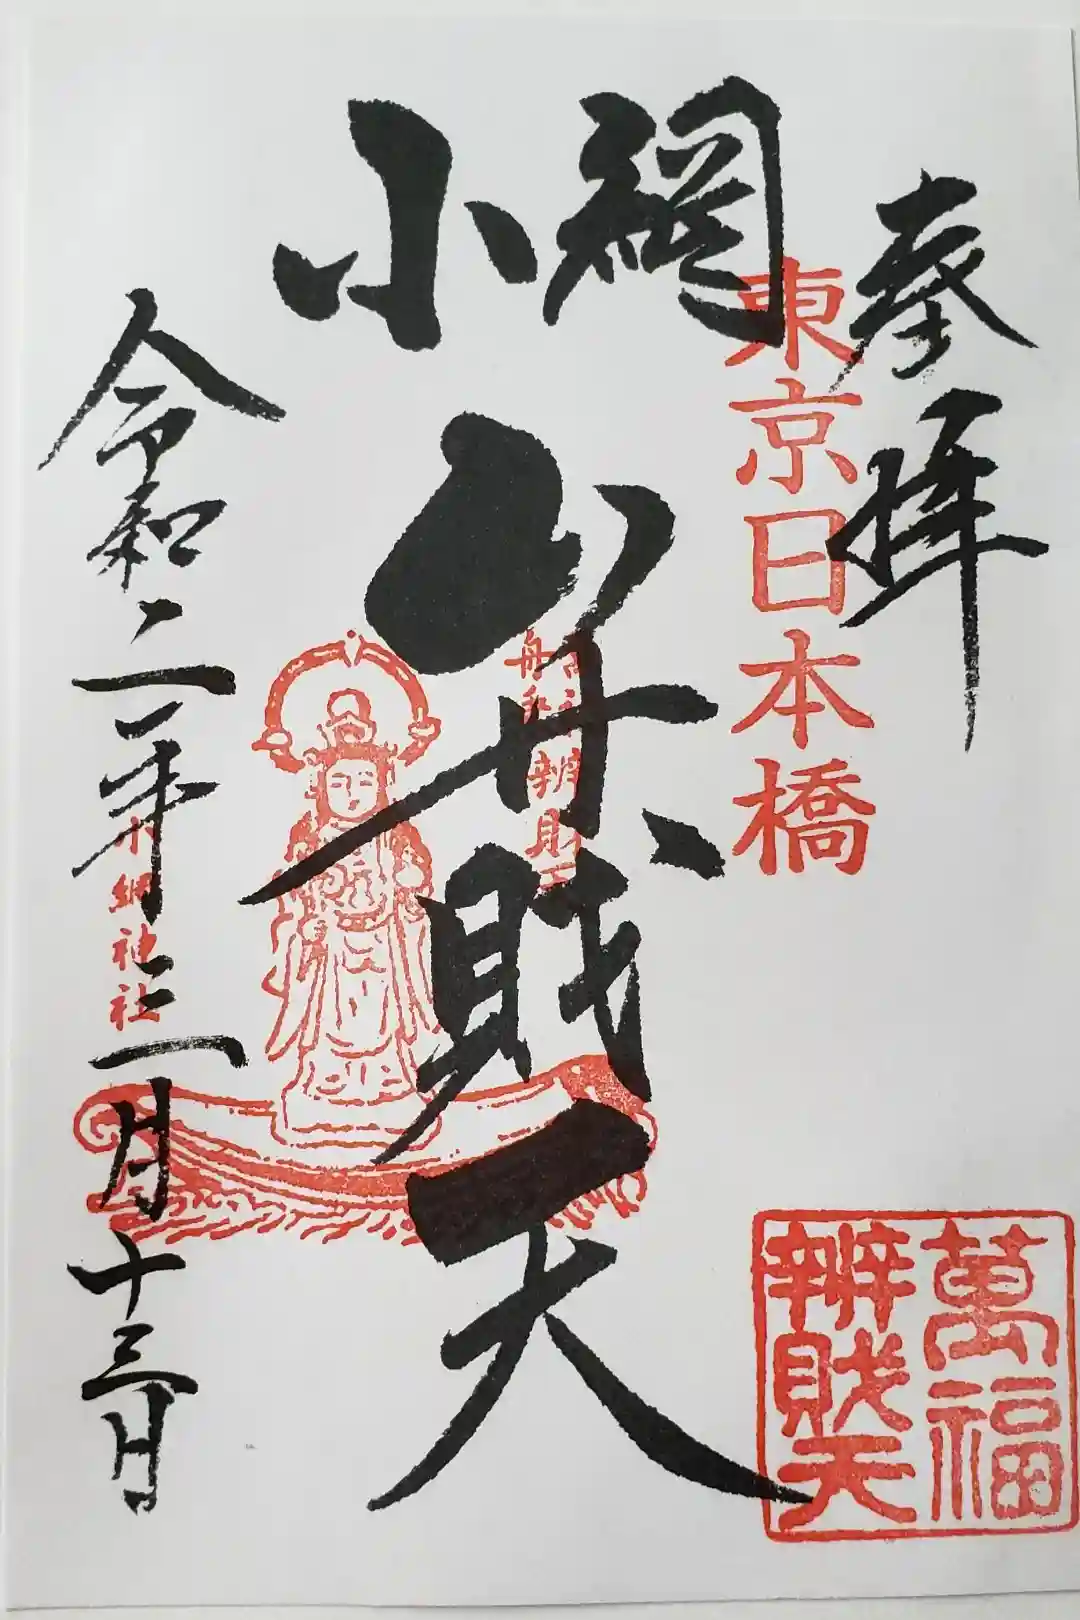 奉拝
東京日本橋
小網
弁財天
萬福
辨財天
令和二年三月十三日
小網神社